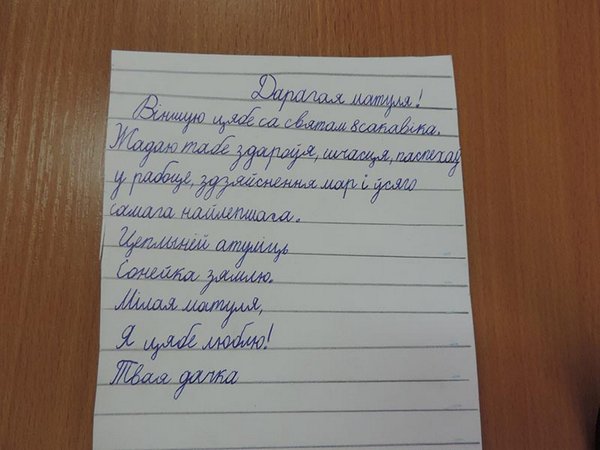 Дарагая матуля!
Віншую цябе са святам 8 сакавіка.
Жадаю табе здароўя, шчасця, поспехаў
у рабоце, здзяйснення мар і ўсяго
самага найлепшага.
Цеплынёй атуліць
Сонейка зямлю.
Мілая матуля,
Я цябе люблю!
Твая дачка